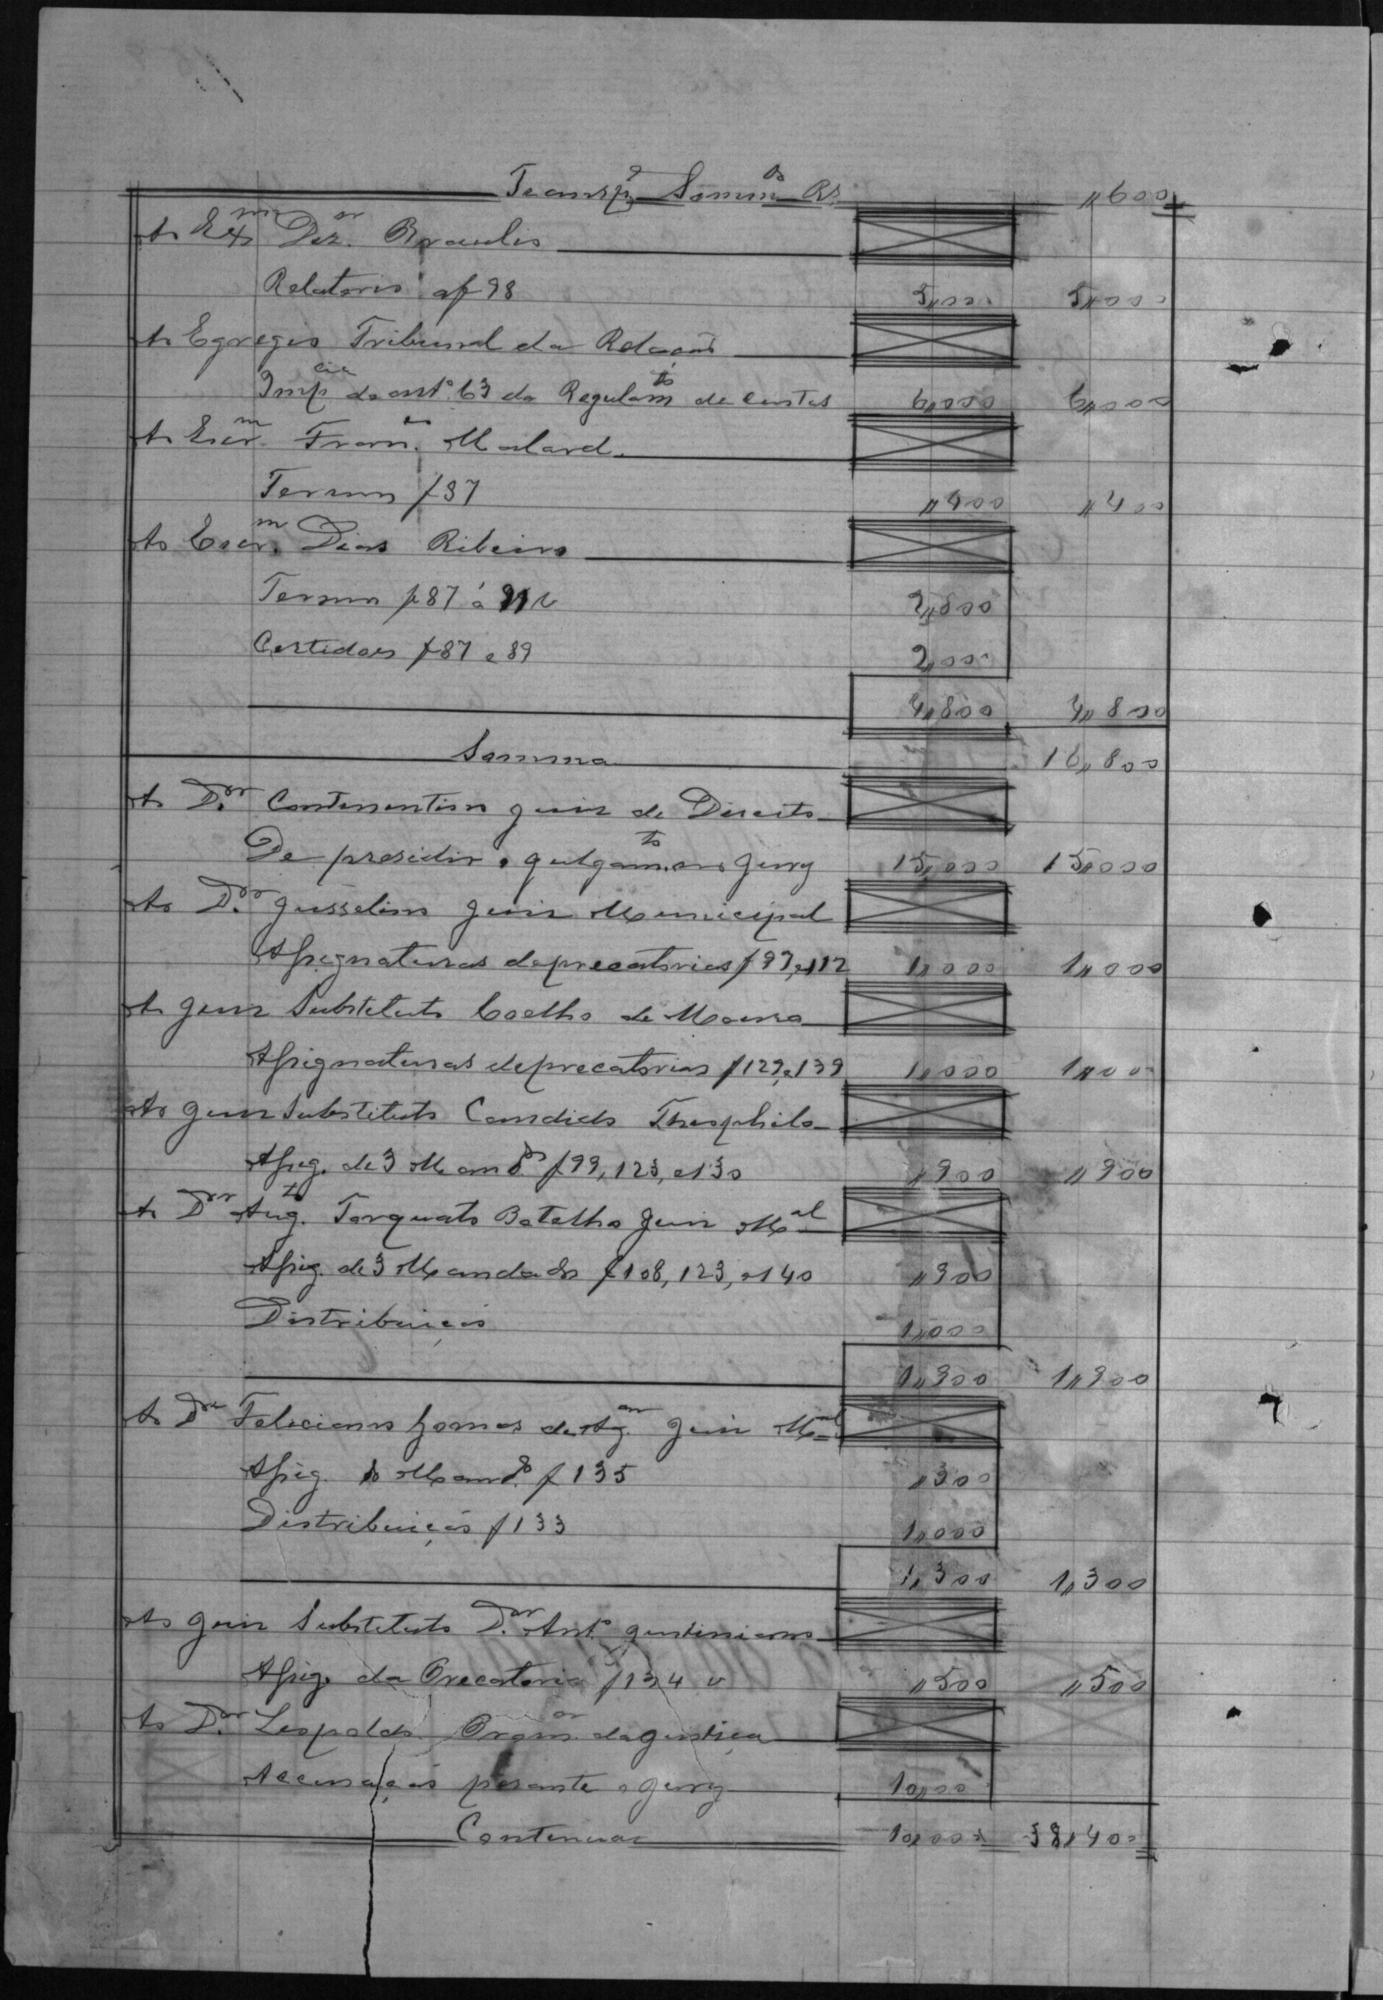 Transp.e Somm.as Rs. "600
Ao Exmo Dez.or Braulio
Relatorio af 98 5"000 5"000
Ao Egregio Tribunal da Relação
Imp.cia do art.º 63 do Regulam.to de custas 6"000 6"000
Ao Escr.m Fran.co Malard
Termo f 97 "400 "400
Ao Escr.m Dias Ribeiro
Termos f 87 á 91 v 2"800
Certidões f 87 e 89 2"000
4"800 4"800
Somma 16"800
Ao D.or Contenentino Juiz de Direito
De presidir o julgam.to no Jury 15"000 15"000
Ao D.or Jusselino Juiz Municipal
Assignaturas deprecatorias f 97, e 112 1"000 1"000
Ao Juiz Substituto Coelho de Moura
Assignaturas deprecatorias f 129, e 139 1"000 1"000
Ao Juiz Substituto Candido Theophilo
Assig. de 3 Mand.os f 99, 123, e 130 "900 "900
Ao D.or Aug.to Torquato Botelho Juiz M.al
Assig. de 3 Mandados f 108, 123, e 140 "300
Distribuição 1"000
1"300 1"300
Ao D.or Feliciano Gomes de Ag.ar Juiz M.al
Assig. do Mand.do f 135 "300
Distribuição f 133 1"000
1"300 1"300
Ao Juiz Substituto D.or Ant.º Justiniano
Assig. da Precatoria f 134 v "500 "500
Ao D.or Leopoldo Prom.or da Justiça
Accusação perante o Jury 10"000
Continua 10"000 38"400